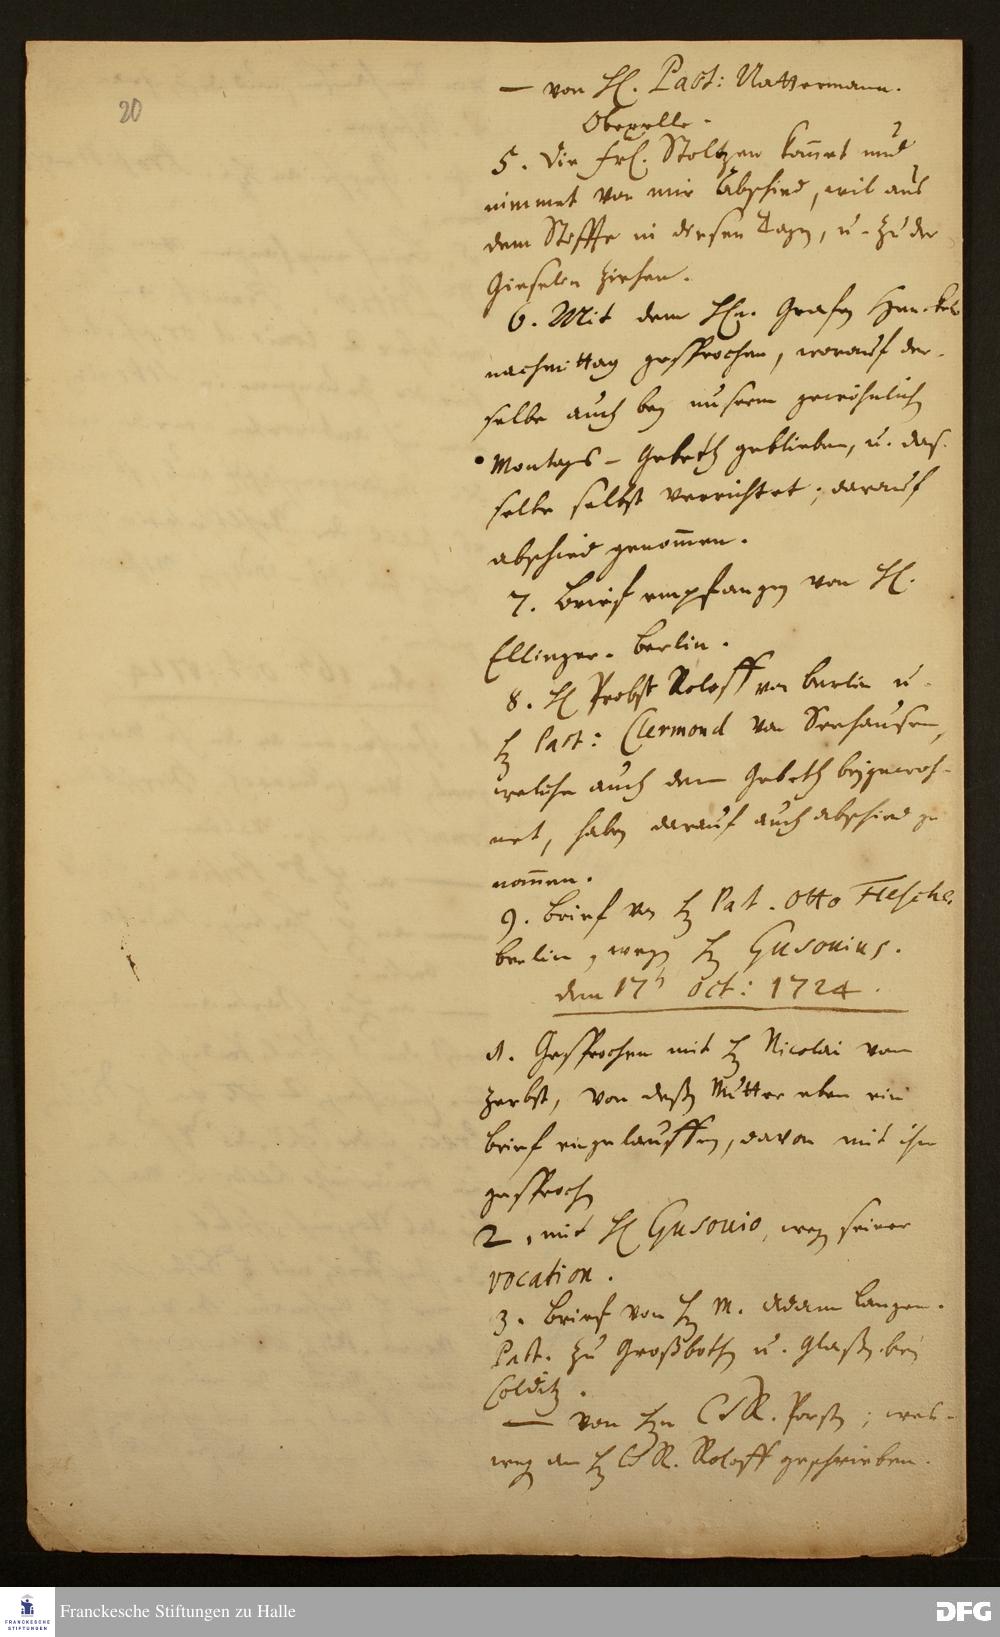 20
— von H. Past: Nattermann.
Oberzelle.
5. Die Frl. Stoltzen kom̄et und
nimmet von mir Abschied, wil aus
dem Stiffte in diesen Tagen, u. zu der
Gieselen ziehen.
6. Mit dem Hn. Grafen Henckel
nachmittag gesprochen, worauf der-
selbe auch bey unserm gewöhnlich
Montags-Gebeth geblieben, u. das-
selbe selbst verrichtet; darauf
abschied genom̄en.
7. Brief empfangen von H.
Ellinger. Berlin.
8. H Probst Roloff von Berlin u.
H Past: Clermond von Seehausen,
welche auch dem Gebeth beygewoh-
net, haben darauf auch abschied ge
nom̄en.
9. Brief von H Past. Otto
Berlin, wegen H Gusovius.
den 17t Oct: 1724.
1. Gesprochen mit H Nicolai von
Zerbst, von deßen Mutter eben ein
brief eingelauffen, davon mit ihm
gesprochen
2. mit H Gusovio, wegen seiner
vocation.
3. Brief von H M. Adam Langen.
Past. zu Großbothen u. Glasten bey
Colditz.
— von Hn CSR. Porst; wes-
wegen an H CSR. Roloff geschrieben.
FRANCKESCHE
STIFTUNGEN
Franckesche Stiftungen zu Halle
DFG